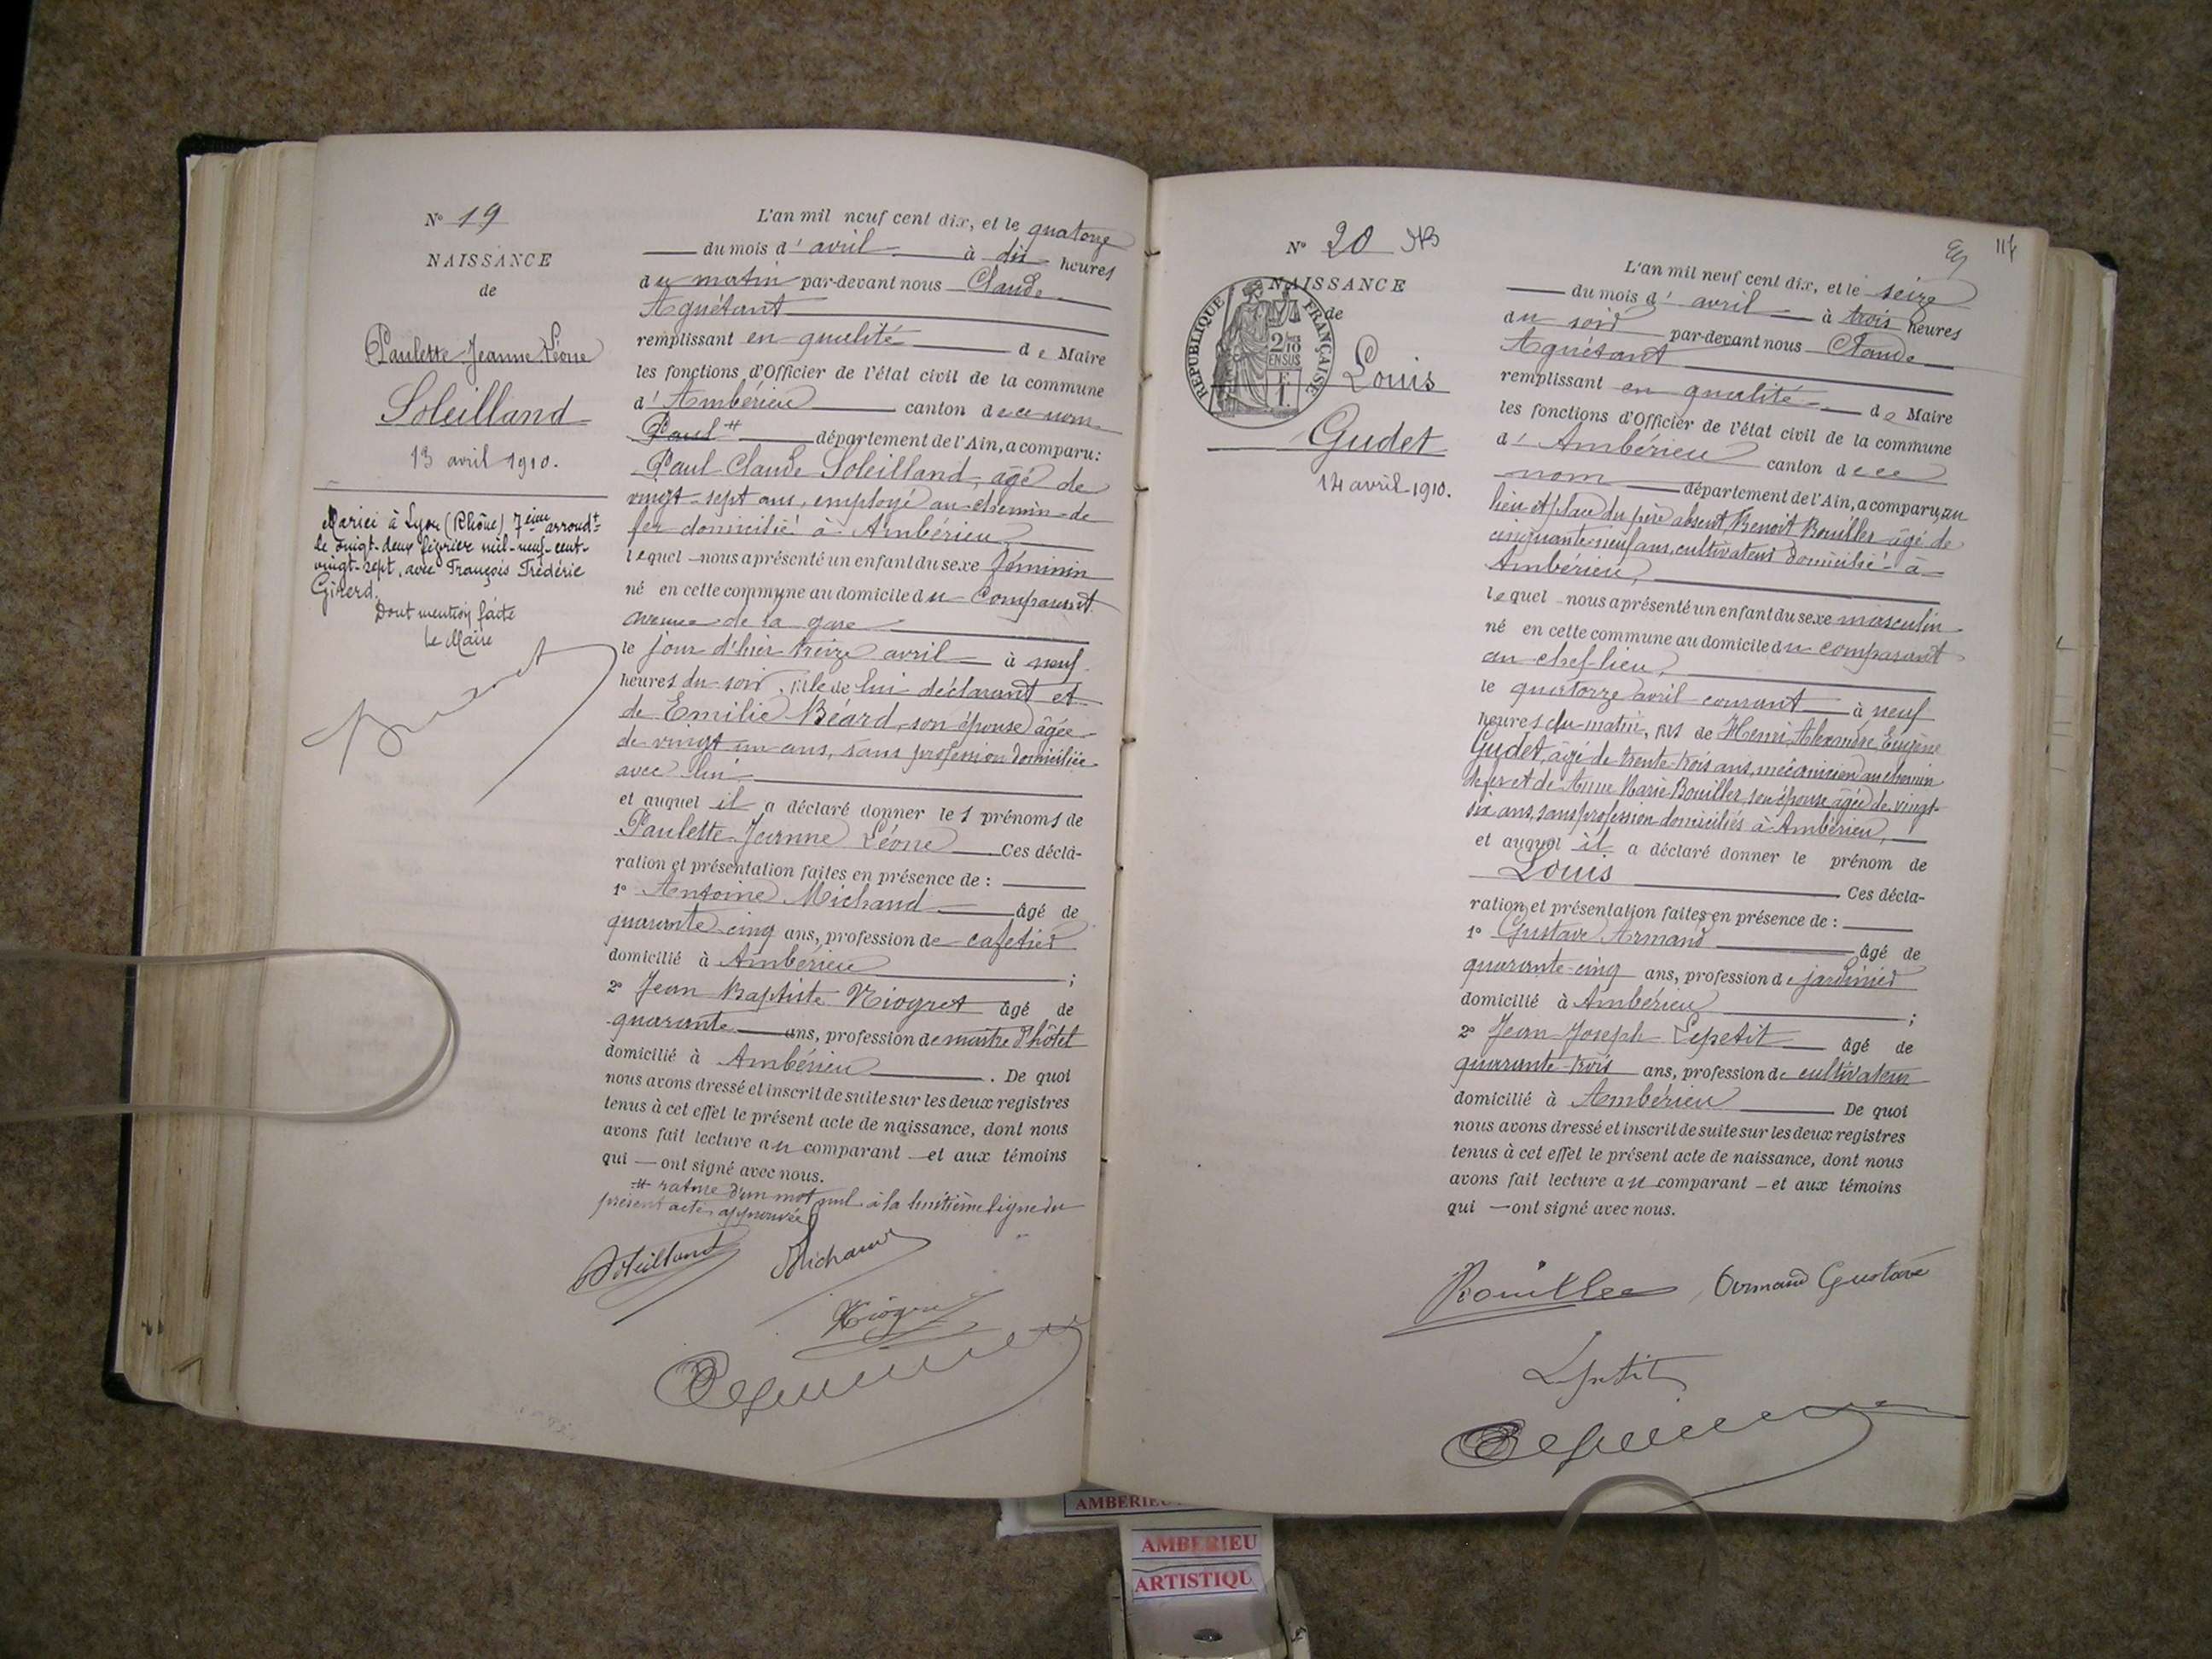 N° 19
NAISSANCE
de
Paulette Jeanne Léone
Soleilland
13 avril 1910.
Mariée à Lyon (Rhône) 7ième arrondt
le vingt-deux février mil-neuf-cent-
vingt-sept, avec François Frédéric
Girerd.
Dont mention faite
Le Maire
L'an mil neuf cent dix, et le quatorze
du mois d'avril à dix heures
du matin par-devant nous Claude
Aguétant
remplissant en qualité de Maire
les fonctions d'Officier de l'état civil de la commune
d'Ambérieu canton de ce nom
Paul # département de l'Ain, a comparu:
Paul Claude Soleilland, âgé de
vingt-sept ans, employé au chemin de
fer domicilié à Ambérieu,
lequel nous a présenté un enfant du sexe féminin
né en cette commune au domicile du comparant
avenue de la gare
le jour d'hier treize avril à neuf
heures du soir, fille de lui déclarant et
de Emilie Béard, son épouse âgée
de vingt un ans, sans profession domiciliée
avec lui
et auquel il a déclaré donner les prénoms de
Paulette Jeanne Léone Ces décla-
ration et présentation faites en présence de :
1° Antoine Michaud âgé de
quarante cinq ans, profession de cafetier
domicilié à Ambérieu ;
2° Jean Baptiste Niogret âgé de
quarante ans, profession de maître d'hôtel
domicilié à Ambérieu . De quoi
nous avons dressé et inscrit de suite sur les deux registres
tenus à cet effet le présent acte de naissance, dont nous
avons fait lecture au comparant et aux témoins
qui ont signé avec nous.
# rature d'un mot nul à la huitième ligne du
présent acte approuvée
Soleilland Michaud
Niogret
N° 20
117
NAISSANCE
de
REPUBLIQUE FRANÇAISE
2/10 EN SUS
Louis
Gudet
14 avril 1910.
L'an mil neuf cent dix, et le seize
du mois d'avril à trois heures
du soir par-devant nous Claude
Aguétant
remplissant en qualité de Maire
les fonctions d'Officier de l'état civil de la commune
d'Ambérieu canton de ce
nom département de l'Ain, a comparu, au
lieu et place du père absent, Benoit Bouiller âgé de
cinquante-neuf ans, cultivateur domicilié à
Ambérieu,
lequel nous a présenté un enfant du sexe masculin
né en cette commune au domicile du comparant
au chef-lieu,
le quatorze avril courant à neuf
heures du matin, fils de Henri, Alexandre, Eugène
Gudet, âgé de trente-trois ans, mécanicien au chemin
de fer et de Anne Marie Bouiller, son épouse âgée de vingt-
six ans, sans profession domiciliés à Ambérieu,
et auquel il a déclaré donner le prénom de
Louis Ces décla-
ration et présentation faites en présence de :
1° Gustave Armand âgé de
quarante-cinq ans, profession de jardinier
domicilié à Ambérieu ;
2° Jean Joseph Lepetit âgé de
quarante-trois ans, profession de cultivateur
domicilié à Ambérieu De quoi
nous avons dressé et inscrit de suite sur les deux registres
tenus à cet effet le présent acte de naissance, dont nous
avons fait lecture au comparant et aux témoins
qui ont signé avec nous.
Bouiller Armand Gustave
Lepetit
AMBERIEU
AMBERIEU
ARTISTIQU